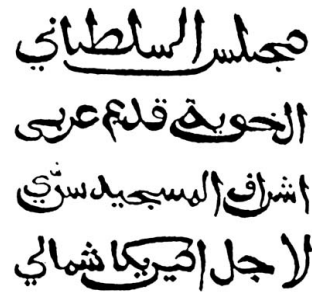 مجلس السلطاني
الخوية قديم عربى
اشراف المسجيد سرّي
لاجل اميريكا شمالي